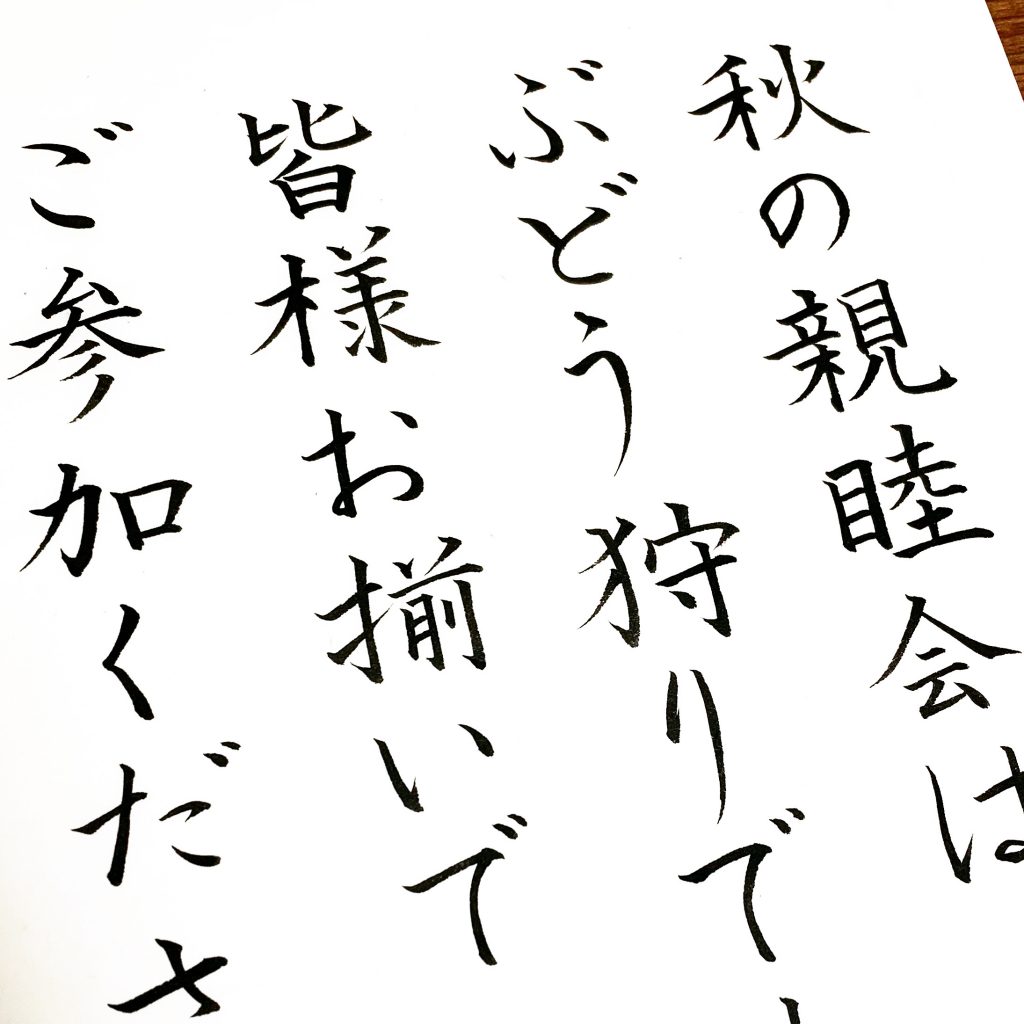 秋の親睦会は
ぶどう狩りで
皆様お揃いで
ご参加くださ